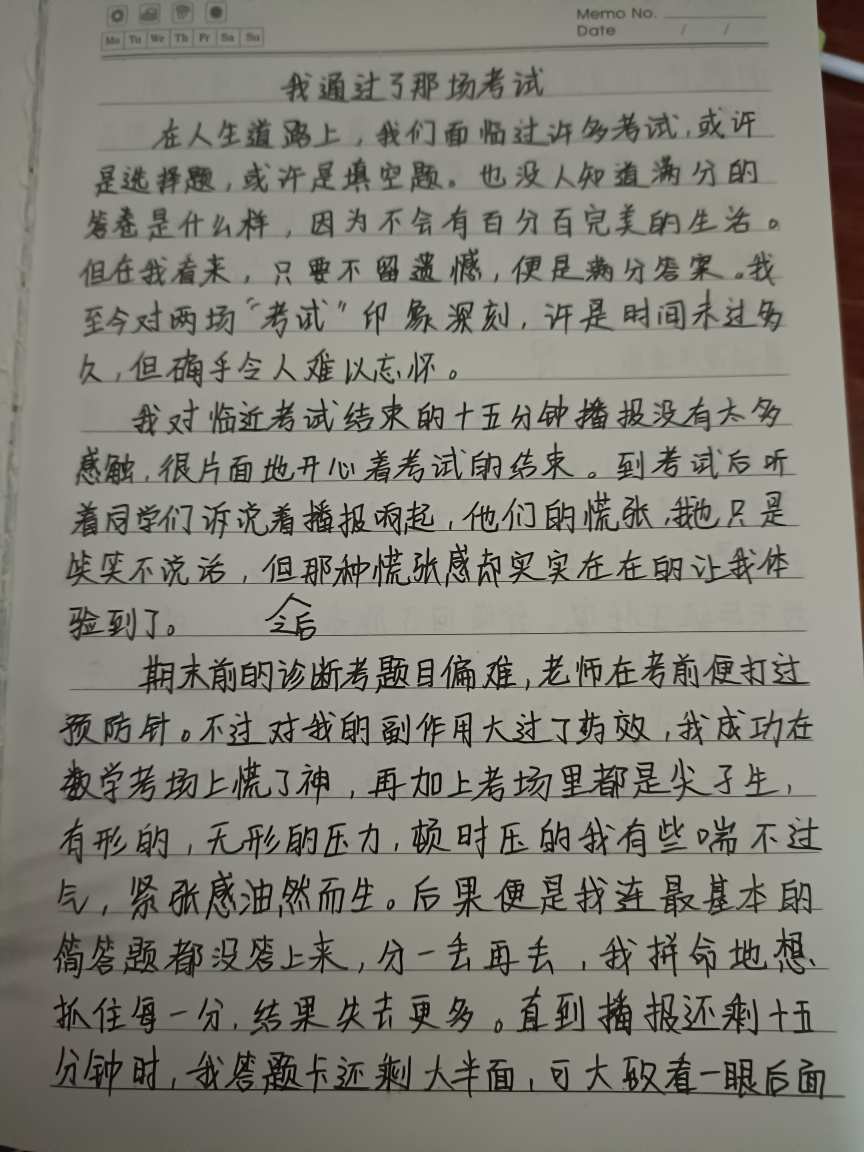 Memo No.
Mo Tu We Th Fr Sa Su
Date / /
我通过了那场考试
在人生道路上，我们面临过许多考试，或许
是选择题，或许是填空题。也没人知道满分的
答卷是什么样，因为不会有百分百完美的生活。
但在我看来，只要不留遗憾，便是满分答案。我
至今对两场“考试”印象深刻，许是时间未过多
久，但确乎令人难以忘怀。
我对临近考试结束的十五分钟播报没有太多
感触，很片面地开心着考试的结束。到考试后听
着同学们诉说着播报响起，他们的慌张，我也只是
笑笑不说话，但那种慌张感却实实在在的让我体
验到了。 今后
期末前的诊断考题目偏难，老师在考前便打过
预防针。不过对我的副作用大过了药效，我成功在
数学考场上慌了神，再加上考场里都是尖子生，
有形的，无形的压力，顿时压的我有些喘不过
气，紧张感油然而生。后果便是我连最基本的
简答题都没答上来，分一丢再丢，我拼命地想
抓住每一分，结果失去更多。直到播报还剩十五
分钟时，我答题卡还剩大半面，可大致看一眼后面